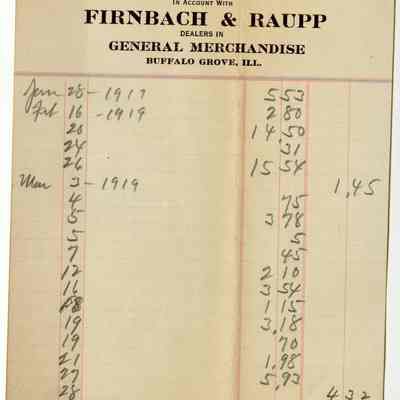 IN ACCOUNT WITH
FIRNBACH & RAUPP
DEALERS IN
GENERAL MERCHANDISE
BUFFALO GROVE, ILL.
Jan 28 - 1919 5 53
Feb 16 - 1919 2 80
20 14,50
24 .31
26 15 54
Mar 3 - 1919 1,45
4 75
5 3 78
5 5
7 45
12 2 10
16 3 54
18 1 15
19 3,18
19 70
21 1,98
27 5,93
28 4 32